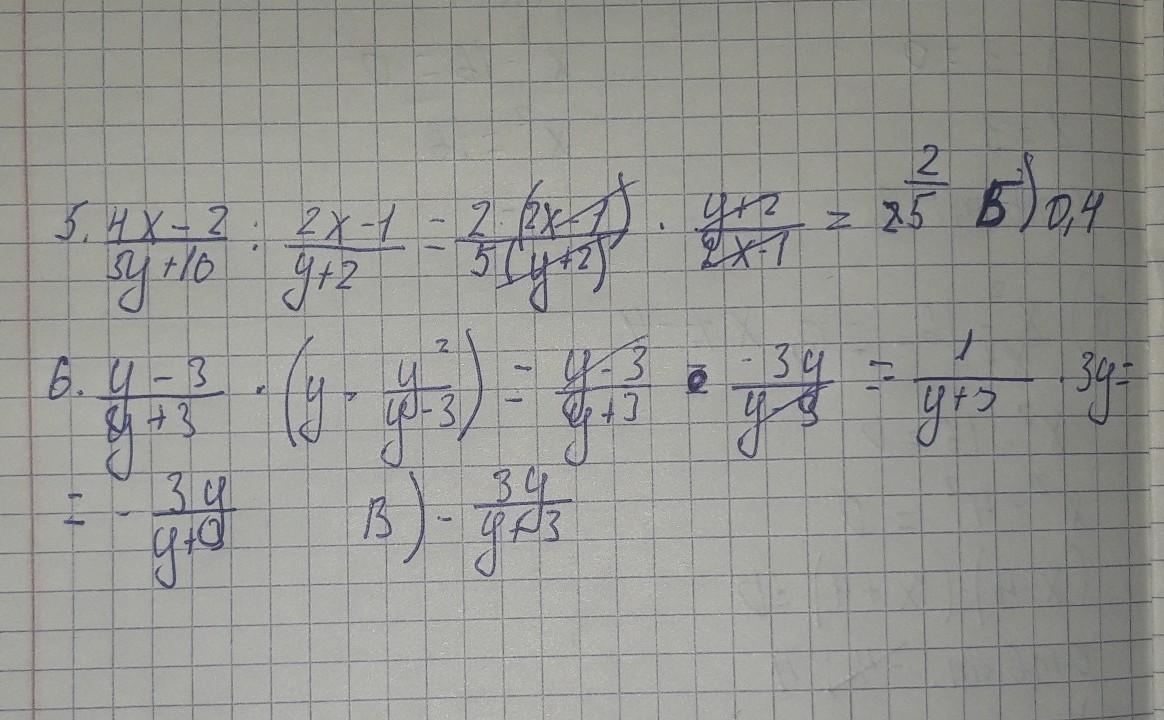 5. (4x-2)/(5y+10) : (2x-1)/(y+2) = 2·(2x-1)/5(y+2) · (y+2)/(2x-1) = 2/5 Б) 0,4
6. (y-3)/(y+3) · (y - y²/(y-3)) = (y-3)/(y+3) · -3y/(y-3) = 1/(y+3) · 3y =
= - 3y/(y+3) В) - 3y/(y+3)